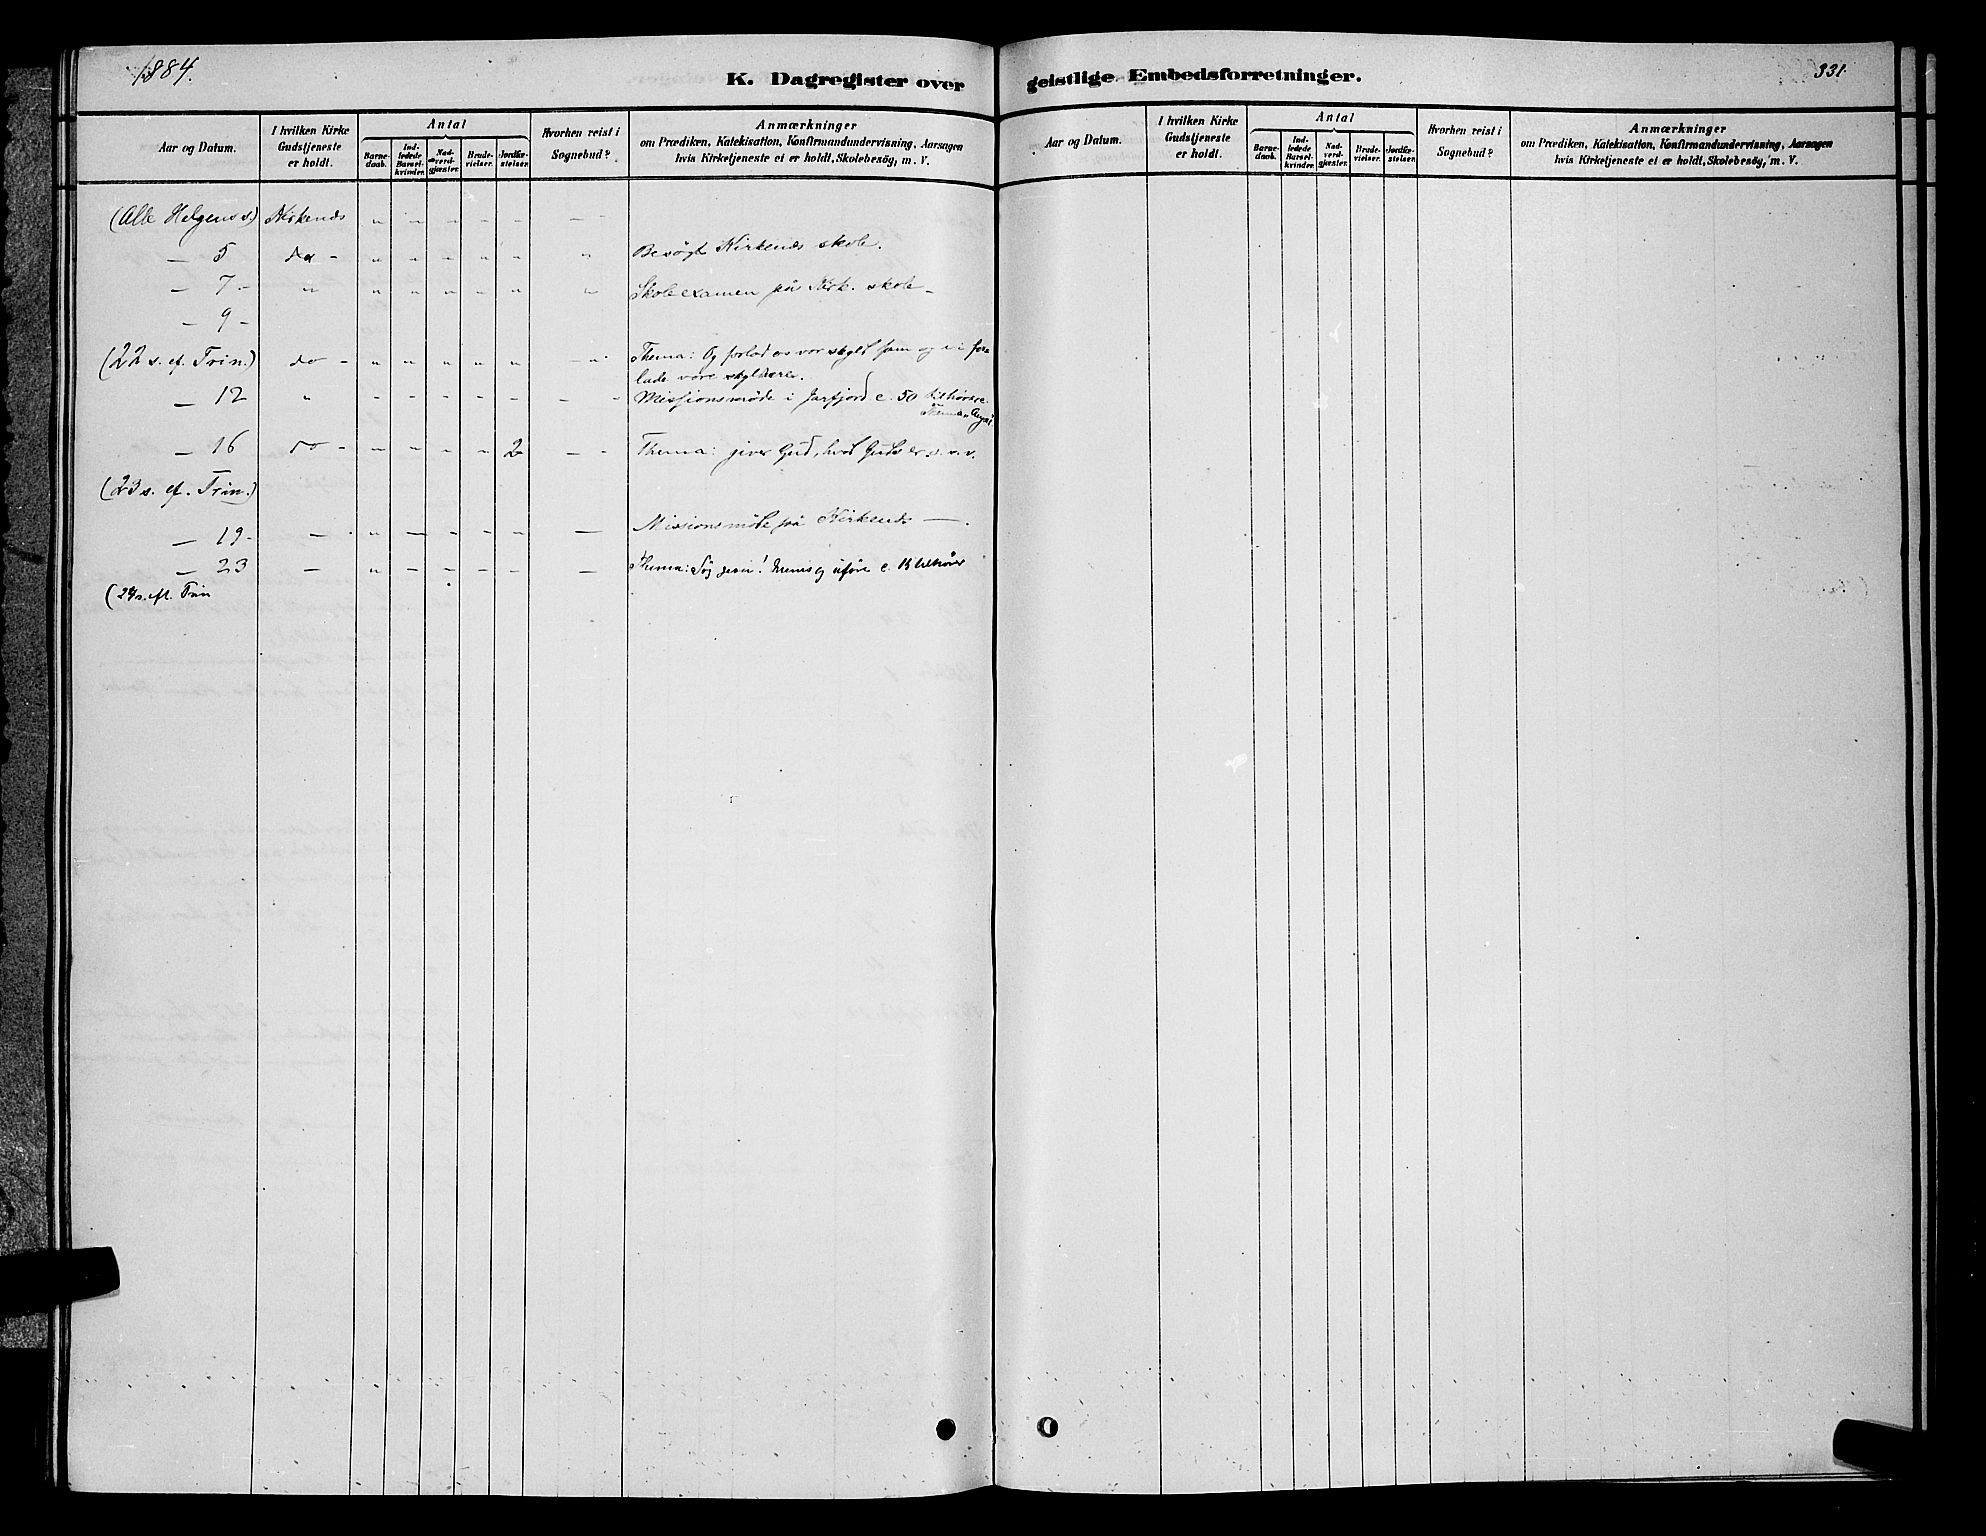 1884.
K. Dagregister over
Aar og Datum.
I hvilken Kirke Gudstjeneste er holdt.
Antal
Barnedaab.
Indledede Barselkvinder.
Nadverdgjæster.
Brudevielser.
Jordfæstelser.
Hvorhen reist i Sognebud?
Anmærkninger
om Prædiken, Katekisation, Konfirmandundervisning, Aarsagen
hvis Kirketjeneste ei er holdt, Skolebesög, m. V.
(Alle Helgens s.) Kirkenæs " " " " " — -
— 5 do - " " " " " " Besögt Kirkenæs skole.
— 7 - " " " " " " " Skoleexamen på Kirk. skole -
— 9 -
(22 s. ef. Trin.) do - " " " " " — " Thema: Og forlad os vor skyld som og vi for-
lade vore skyldnere.
— 12 " - - - - - — " Missionsmöde i Jarfjord c. 50 tilhörere.
Thema
— 16 do - - - - - 2 — - Thema: giver Gud, hvad Guds er o. s. v.
(23 s. ef. Trin.)
— 19 - — " — - - — — Missionsmöde på Kirkenæs — .
— 23 — " - - - - — Thema: Søg uføre c. tilhører
(24 s. eft. Trin
geistlige Embedsforretninger.
331.
Aar og Datum.
I hvilken Kirke Gudstjeneste er holdt.
Antal
Barnedaab.
Indledede Barselkvinder.
Nadverdgjæster.
Brudevielser.
Jordfæstelser.
Hvorhen reist i Sognebud?
Anmærkninger
om Prædiken, Katekisation, Konfirmandundervisning, Aarsagen
hvis Kirketjeneste ei er holdt, Skolebesög, m. V.